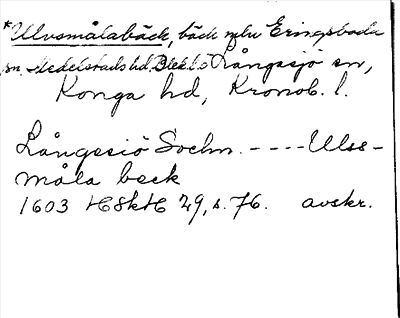 *Ulvsmålabäck, bäck mln Eringsboda
sn, Medelstads hd, Blek. l. o Långasjö sn,
Konga hd, Kronob. l.
Långesiö Sochn. ---- Ulss-
måla beck
1603 HSkH 29, s. 76. avskr.